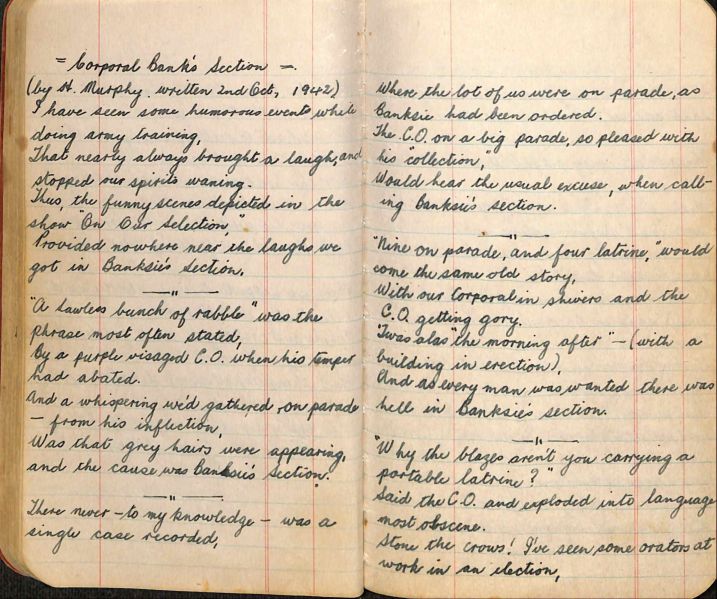 = Corporal Bank's Section =
(by H. Murphy. written 2nd Oct, 1942)
I have seen some humorous events while
doing army training,
That nearly always brought a laugh, and
stopped our spirits waning.
Thus, the funny scenes depicted in the
show "On Our Selection,"
Provided nowhere near the laughs we
got in Banksie's Section.
"A lawless bunch of rabble" was the
phrase most often stated,
By a purple visaged C.O. when his temper
had abated.
And a whispering we'd gathered, on parade
– from his inflection,
Was that grey hairs were appearing,
and the cause was Banksie's Section.
There never – to my knowledge – was a
single case recorded,
Where the lot of us were on parade, as
Banksie had been ordered.
The C.O. on a big parade, so pleased with
his "collection,
Would hear the usual excuse, when call-
ing Banksie's section.
"Nine on parade, and four latrine," would
come the same old story,
With our Corporal in shivers and the
C.O. getting gory.
'Twas alas "the morning after" – (with a
building in erection),
And as every man was wanted there was
hell in Banksie's section.
"Why the blazes aren't you carrying a
portable latrine?"
Said the C.O. and exploded into language
most obscene.
Stone the crows! I've seen some orators at
work in an election,